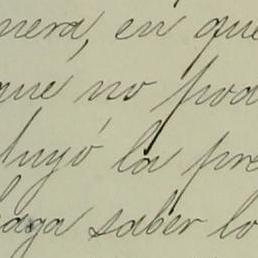 nera, en que
que no pod
luyó la pre
haga saber lo